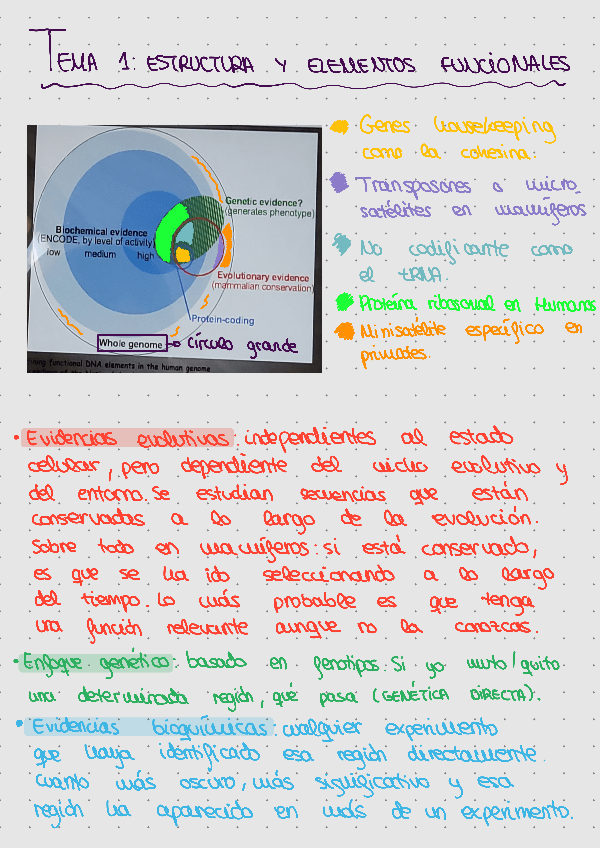 TEMA 1: ESTRUCTURA Y ELEMENTOS FUNCIONALES
Genetic evidence?
(generates phenotype)
Biochemical evidence
(ENCODE, by level of activity)
low medium high
Evolutionary evidence
(mammalian conservation)
Protein-coding
Whole genome → Círculo grande
ning functional DNA elements in the human genome
Genes housekeeping
como la cohesina.
Transposones o micro_
satélites en mamíferos
No codificante como
el tRNA.
Proteína ribosomal en Humanos
Minisatélite específico en
primates.
• Evidencias evolutivas: independientes al estado
celular, pero dependiente del nicho evolutivo y
del entorno. Se estudian secuencias que están
conservadas a lo largo de la evolución.
Sobre todo en mamíferos: si está conservado,
es que se ha ido seleccionando a lo largo
del tiempo. Lo más probable es que tenga
una función relevante aunque no la conozcas.
• Enfoque genético: basado en fenotipos. Si yo muto/quito
una determinada región, qué pasa (GENÉTICA DIRECTA).
• Evidencias bioquímicas: cualquier experimento
que haya identificado esa región directamente.
Cuanto más oscuro, más significativo y esa
región ha aparecido en más de un experimento.